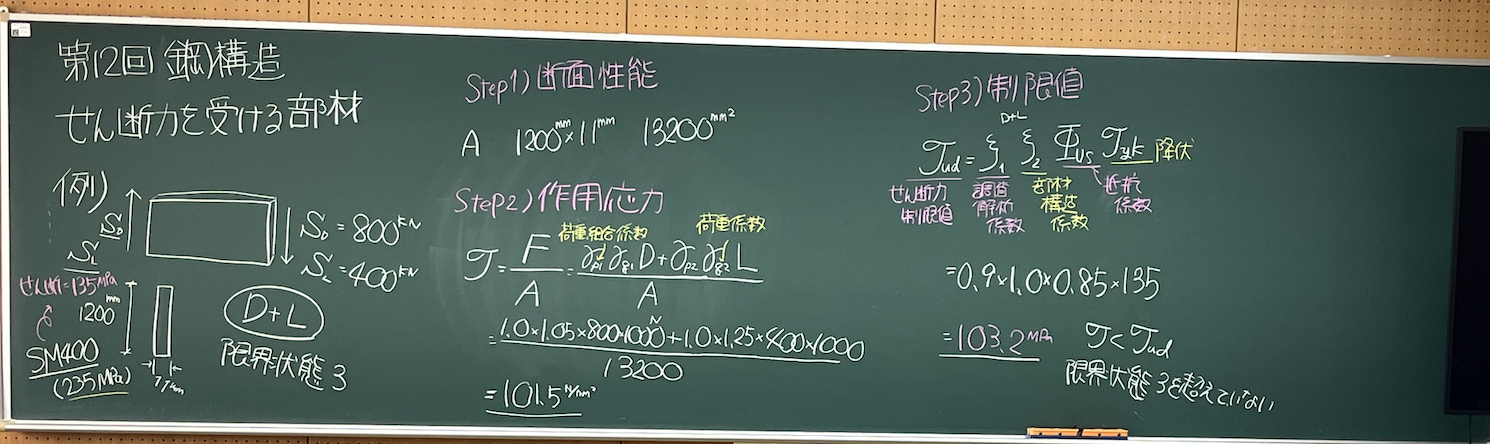 第12回 鋼構造
せん断力を受ける部材
例)
S_D
S_L
S_D = 800kN
S_L = 400kN
せん断=135MPa
1200mm
SM400
(235MPa)
11mm
D+L
限界状態3
Step1) 断面性能
A 1200mm×11mm 13200mm²
Step2) 作用応力
荷重組合係数 荷重係数
τ = F/A = (γp1 γg1 D + γp2 γg2 L)/A
= (1.0×1.05×800×1000N + 1.0×1.25×400×1000)/13200
= 101.5 N/mm²
Step3) 制限値
D+L
τud = ξ1 ξ2 Φus τyk 降伏
せん断力制限値
調査解析係数
部材構造係数
抵抗係数
= 0.9×1.0×0.85×135
= 103.2MPa τ < τud
限界状態3を超えていない